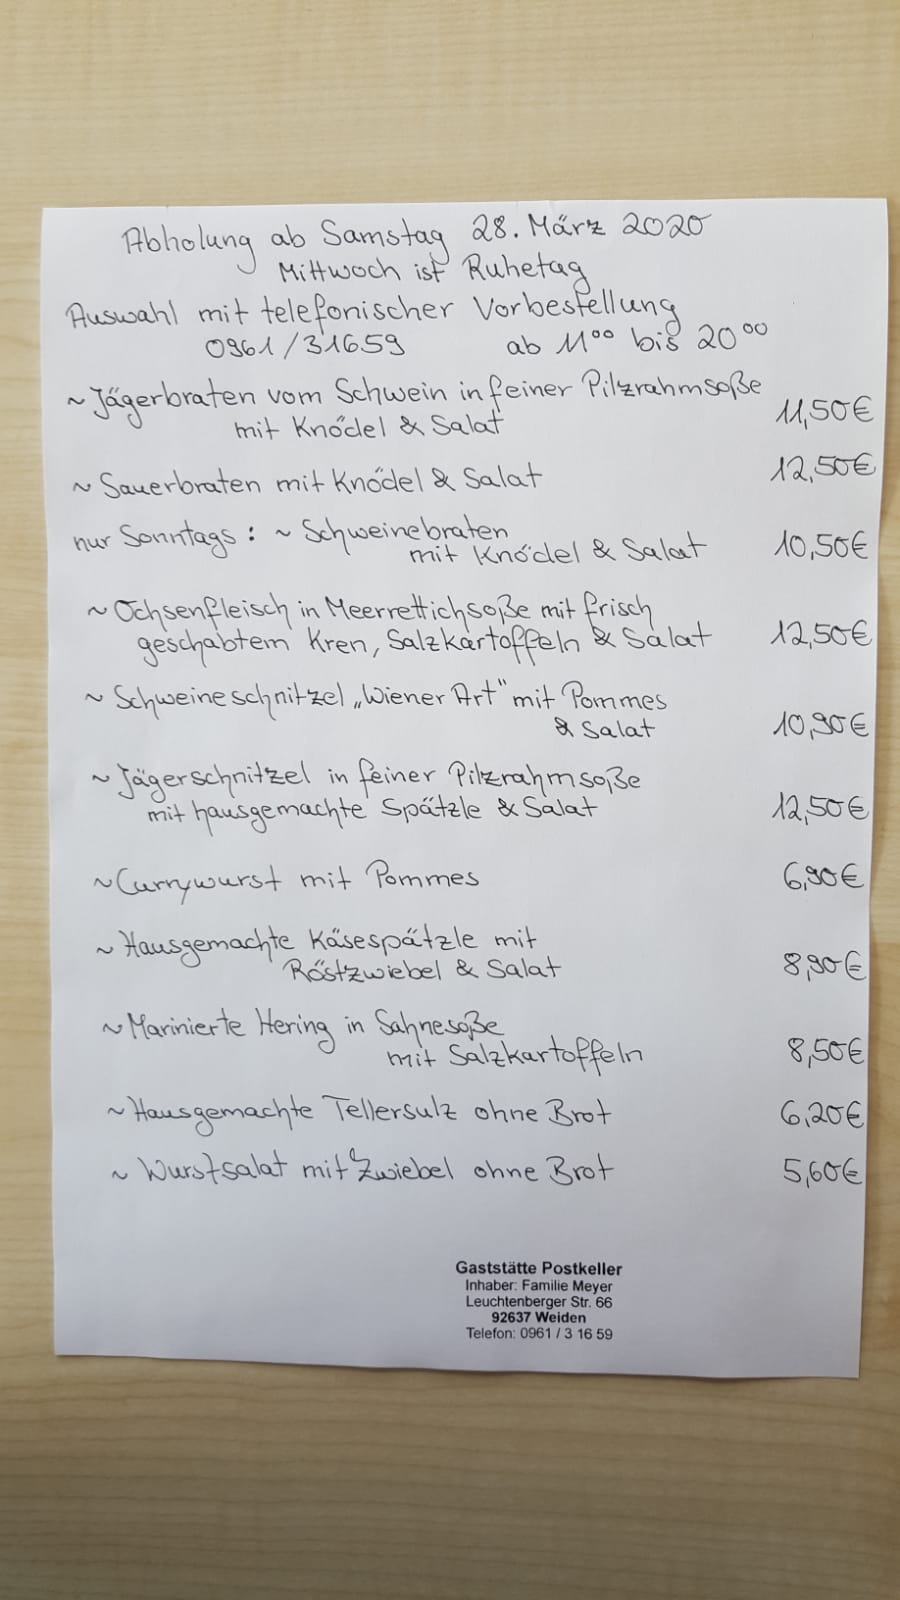 Abholung ab Samstag 28. März 2020
Mittwoch ist Ruhetag
Auswahl mit telefonischer Vorbestellung
0961/31659 ab 11⁰⁰ bis 20⁰⁰
~ Jägerbraten vom Schwein in feiner Pilzrahmsoße
mit Knödel & Salat 11,50€
~ Sauerbraten mit Knödel & Salat 12,50€
nur Sonntags: ~ Schweinebraten
mit Knödel & Salat 10,50€
~ Ochsenfleisch in Meerrettichsoße mit frisch
geschabtem Kren, Salzkartoffeln & Salat 12,50€
~ Schweineschnitzel „Wiener Art" mit Pommes
& Salat 10,90€
~ Jägerschnitzel in feiner Pilzrahmsoße
mit hausgemachte Spätzle & Salat 12,50€
~ Currywurst mit Pommes 6,90€
~ Hausgemachte Käsespätzle mit
Röstzwiebel & Salat 8,90€
~ Marinierte Hering in Sahnesoße
mit Salzkartoffeln 8,50€
~ Hausgemachte Tellersulz ohne Brot 6,20€
~ Wurstsalat mit Zwiebel ohne Brot 5,60€
Gaststätte Postkeller
Inhaber: Familie Meyer
Leuchtenberger Str. 66
92637 Weiden
Telefon: 0961 / 3 16 59